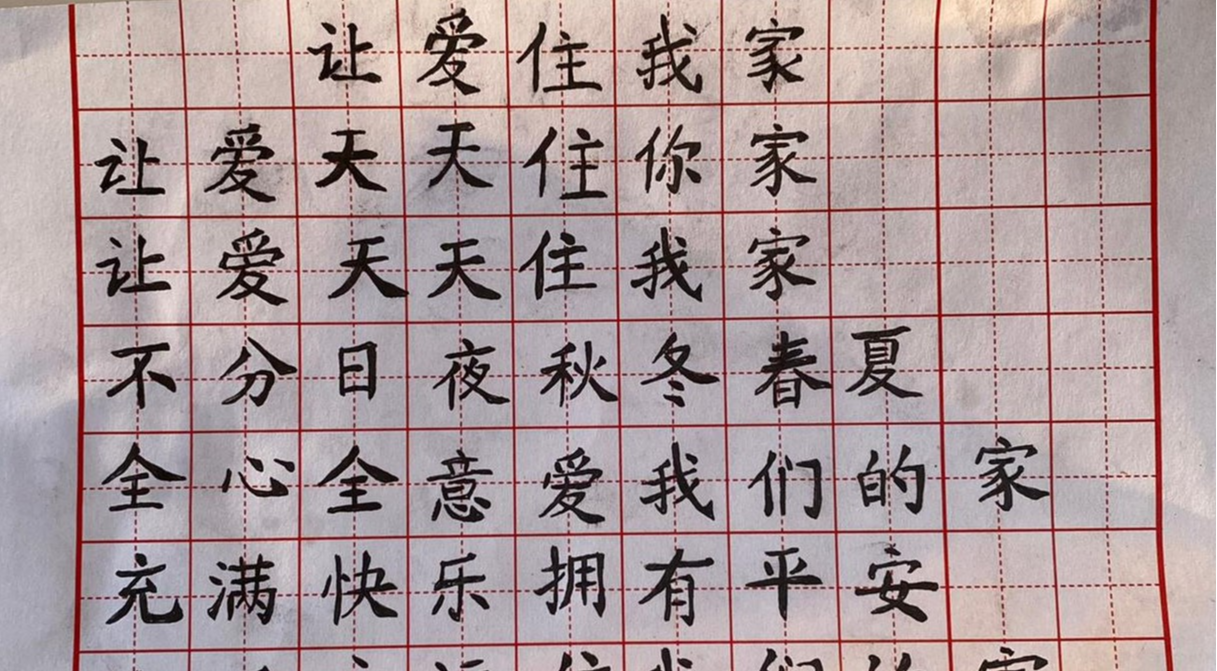 让爱住我家
让爱天天住你家
让爱天天住我家
不分日夜秋冬春夏
全心全意爱我们的家
充满快乐拥有平安